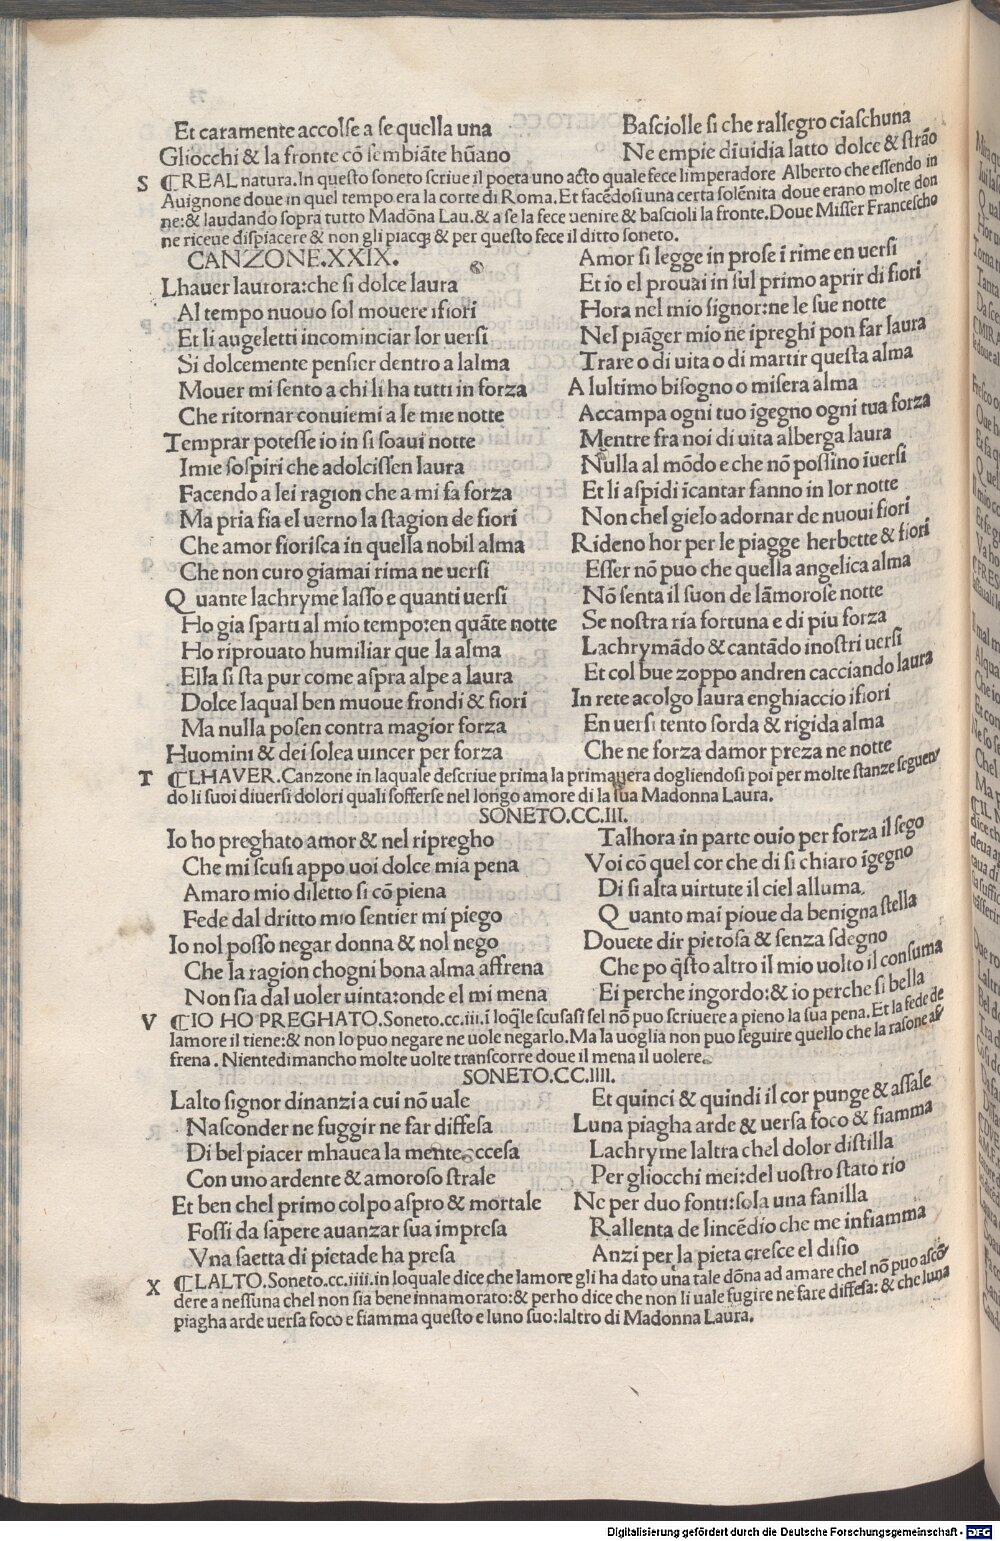 Et caramente accolse a se quella una
Gliocchi & la fronte cõ sembiãte hũano
Basciolle si che rallegro ciaschuna
Ne empie diuidia latto dolce & strão
S ¶REAL natura. In questo soneto scriue il poeta uno acto quale fece limperadore Alberto che essendo in
Auignone doue in quel tempo era la corte di Roma. Et facẽdosi una certa solẽnita doue erano molte don
ne: & laudando sopra tutto Madõna Lau. & a se la fece uenire & bascioli la fronte. Doue Misser Francescho
ne riceue dispiacere & non gli piacq; & per questo fece il ditto soneto.
CANZONE.XXIX.
Lhauer laurora: che si dolce laura
Al tempo nuouo sol mouere ifiori
Et li augeletti incominciar lor uersi
Si dolcemente pensier dentro a lalma
Mouer mi sento a chi li ha tutti in forza
Che ritornar conuiemi a le mie notte
Temprar potesse io in si soaui notte
Imie sospiri che adolcissen laura
Facendo a lei ragion che a mi fa forza
Ma pria fia el uerno la stagion de fiori
Che amor fiorisca in quella nobil alma
Che non curo giamai rima ne uersi
Quante lachryme lasso e quanti uersi
Ho gia sparti al mio tempo: en quãte notte
Ho riprouato humiliar que la alma
Ella si sta pur come aspra alpe a laura
Dolce laqual ben muoue frondi & fiori
Ma nulla posen contra magior forza
Huomini & dei solea uincer per forza
Amor si legge in prose ĩ rime en uersi
Et io el prouai in sul primo aprir di fiori
Hora nel mio signor: ne le sue notte
Nel piãger mio ne ipreghi pon far laura
Trare o di uita o di martir questa alma
A lultimo bisogno o misera alma
Accampa ogni tuo ĩgegno ogni tua forza
Mentre fra noi di uita alberga laura
Nulla al mõdo e che nõ possino ĩuersi
Et li aspidi ĩcantar fanno in lor notte
Non chel gielo adornar de nuoui fiori
Rideno hor per le piagge herbette & fiori
Esser nõ puo che quella angelica alma
Nõ senta il suon de lãmorose notte
Se nostra ria fortuna e di piu forza
Lachrymãdo & cantãdo inostri uersi
Et col bue zoppo andren cacciando laura
In rete acolgo laura enghiaccio ifiori
En uersi tento sorda & rigida alma
Che ne forza damor preza ne notte
T ¶LHAVER. Canzone in laquale descriue prima la primauera dogliendosi poi per molte stanze seguen
do li suoi diuersi dolori quali sofferse nel longo amore di la sua Madonna Laura.
SONETO.CC.III.
Io ho preghato amor & nel ripregho
Che mi scusi appo uoi dolce mia pena
Amaro mio diletto si cõ piena
Fede dal dritto mio sentier mi piego
Io nol posso negar donna & nol nego
Che la ragion chogni bona alma affrena
Non sia dal uoler uinta: onde el mi mena
Talhora in parte ouio per forza il sego
Voi cõ quel cor che di si chiaro ĩgegno
Di si alta uirtute il ciel alluma,
Quanto mai pioue da benigna stella
Douete dir pietosa & senza sdegno
Che po q̃sto altro il mio uolto il consuma
Ei perche ingordo: & io perche si bella
V ¶IO HO PREGHATO. Soneto.cc.iii.ĩ loq̃le scusasi sel nõ puo scriuere a pieno la sua pena. Et la fede de
lamore il tiene: & non lo puo negare ne uole negarlo. Ma la uoglia non puo seguire quello che la rasone af
frena. Nientedimancho molte uolte transcorre doue il mena il uolere.
SONETO.CC.IIII.
Lalto signor dinanzi a cui nõ uale
Nasconder ne fuggir ne far diffesa
Di bel piacer mhauea la mente accesa
Con uno ardente & amoroso strale
Et ben chel primo colpo aspro & mortale
Fossi da sapere auanzar sua impresa
Vna saetta di pietade ha presa
Et quinci & quindi il cor punge & assale
Luna piagha arde & uersa foco & fiamma
Lachryme laltra chel dolor distilla
Per gliocchi mei: del uostro stato rio
Ne per duo fonti: sola una fanilla
Rallenta de lincẽdio che me infiamma
Anzi per la pieta cresce el disio
X ¶LALTO. Soneto.cc.iiii.in loquale dice che lamore gli ha dato una tale dõna ad amare chel nõ puo ascõ
dere a nessuna chel non sia bene innamorato: & perho dice che non li uale fugire ne fare diffesa: & che luna
piagha arde uersa foco e fiamma questo e luno suo: laltro di Madonna Laura.
Digitalisierung gefördert durch die Deutsche Forschungsgemeinschaft - DFG